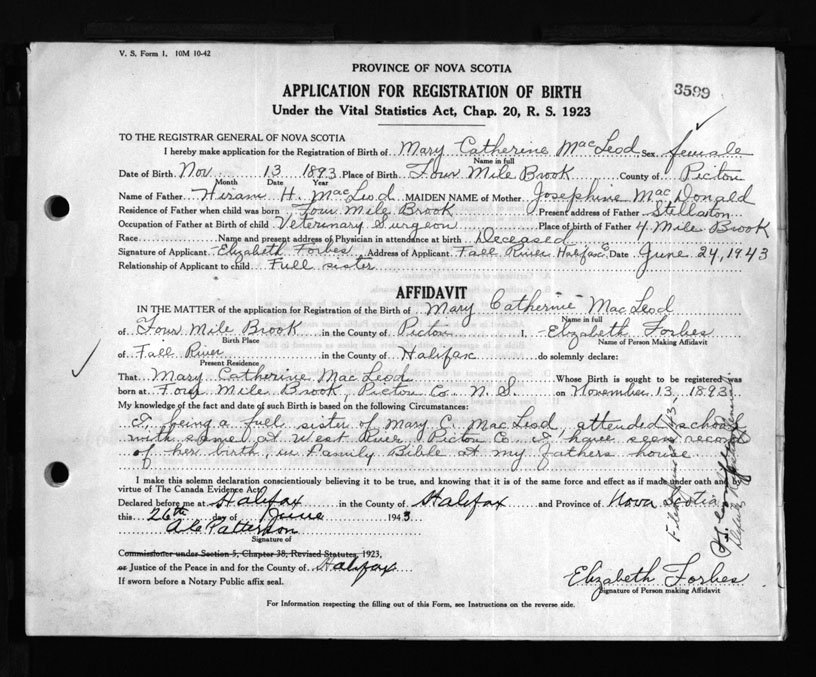 V. S. Form 1. 10M 10-42
PROVINCE OF NOVA SCOTIA
3599
APPLICATION FOR REGISTRATION OF BIRTH
Under the Vital Statistics Act, Chap. 20, R. S. 1923
TO THE REGISTRAR GENERAL OF NOVA SCOTIA
I hereby make application for the Registration of Birth of Mary Catherine MacLeod Sex female
Name in full
Date of Birth Nov 13 1893 Place of Birth Four Mile Brook County of Pictou
Month Date Year
Name of Father Hiram H. MacLeod MAIDEN NAME of Mother Josephine MacDonald
Residence of Father when child was born Four Mile Brook Present address of Father Stellarton
Occupation of Father at Birth of child Veterinary Surgeon Place of birth of Father 4 Mile Brook
Race Name and present address of Physician in attendance at birth Deceased
Signature of Applicant Elizabeth Forbes Address of Applicant Fall River Halifax Co Date June 24, 1943
Relationship of Applicant to child Full sister
AFFIDAVIT
IN THE MATTER of the application for Registration of the Birth of Mary Catherine MacLeod
Name in full
of Four Mile Brook in the County of Pictou I, Elizabeth Forbes
Birth Place Name of Person Making Affidavit
of Fall River in the County of Halifax do solemnly declare:
Present Residence
That Mary Catherine MacLeod Whose Birth is sought to be registered was
born at Four Mile Brook, Pictou Co. N. S. on November 13, 1893
My knowledge of the fact and date of such Birth is based on the following Circumstances:
I, being a full sister of Mary C. MacLeod, attended school
with same at West River, Pictou Co. I have seen record
of her birth, in Family Bible at my fathers house.
I make this solemn declaration conscientiously believing it to be true, and knowing that it is of the same force and effect as if made under oath and by
virtue of The Canada Evidence Act.
Declared before me at Halifax in the County of Halifax and Province of Nova Scotia
this 26th day of June 1943
A C Patterson
Signature of
Commissioner under Section 5, Chapter 38, Revised Statutes, 1923,
or Justice of the Peace in and for the County of Halifax
If sworn before a Notary Public affix seal.
Elizabeth Forbes
Signature of Person making Affidavit
For Information respecting the filling out of this Form, see Instructions on the reverse side.